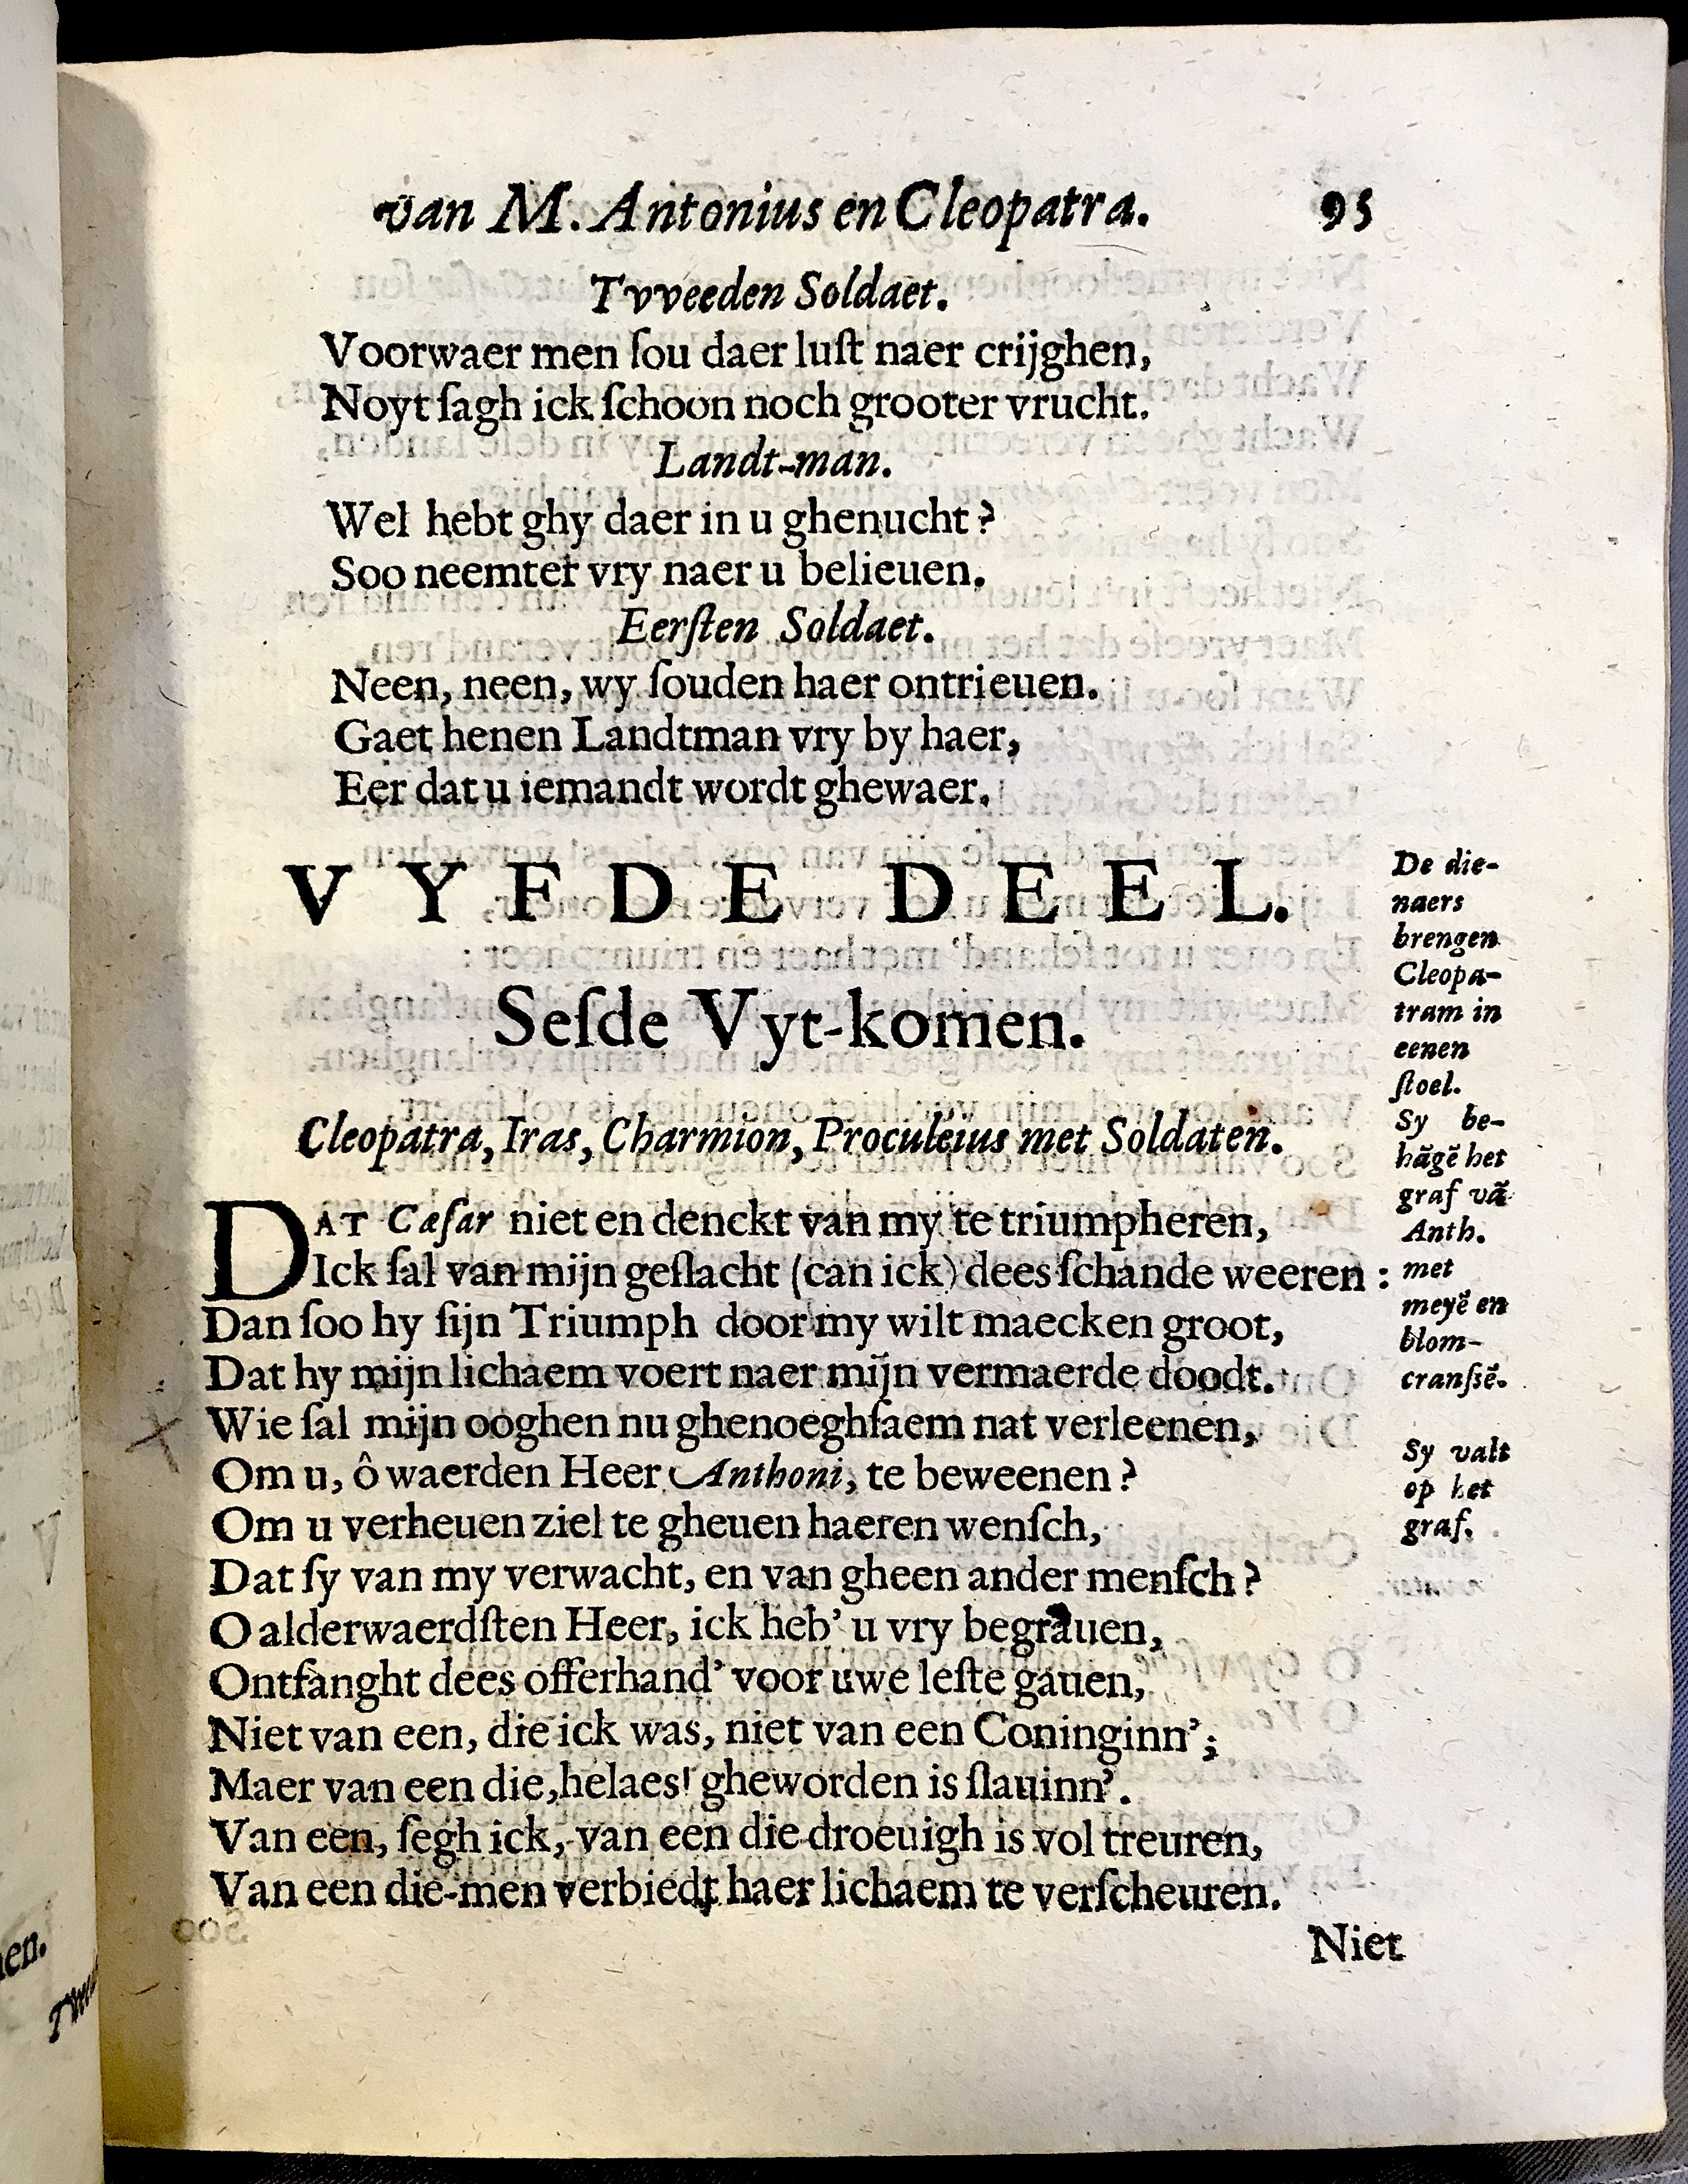 van M. Antonius en Cleopatra. 95
Tvveeden Soldaet.
Voorwaer men ſou daer luſt naer crijghen,
Noyt ſagh ick ſchoon noch grooter vrucht.
Landt-man.
Wel hebt ghy daer in u ghenucht?
Soo neemter vry naer u belieuen.
Eerſten Soldaet.
Neen, neen, wy ſouden haer ontrieuen.
Gaet henen Landtman vry by haer,
Eer dat u iemandt wordt ghewaer.
VYFDE DEEL.
Seſde Vyt-komen.
Cleopatra, Iras, Charmion, Proculeius met Soldaten.
DAT Cæſar niet en denckt van my te triumpheren,
Ick ſal van mijn geſlacht (can ick) dees ſchande weeren:
Dan ſoo hy ſijn Triumph door my wilt maecken groot,
Dat hy mijn lichaem voert naer mijn vermaerde doodt.
Wie ſal mijn ooghen nu ghenoeghſaem nat verleenen,
Om u, ô waerden Heer Anthoni, te beweenen?
Om u verheuen ziel te gheuen haeren wenſch,
Dat ſy van my verwacht, en van gheen ander menſch?
O alderwaerdſten Heer, ick heb' u vry begrauen,
Ontfanght dees offerhand' voor uwe leſte gauen,
Niet van een, die ick was, niet van een Coninginn';
Maer van een die, helaes! gheworden is ſlauinn'.
Van een, ſegh ick, van een die droeuigh is vol treuren,
Van een die-men verbiedt haer lichaem te verſcheuren.
Niet
De die-
naers
brengen
Cleopa-
tram in
eenen
ſtoel.
Sy be-
hãgẽ het
graf vã
Anth.
met
meyẽ en
blom-
cranſsẽ.
Sy valt
op het
graf.